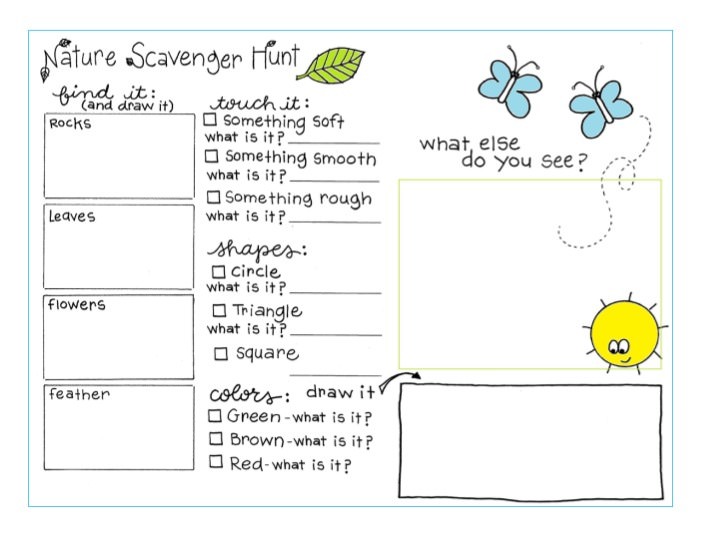 Nature Scavenger Hunt
find it:
(and draw it)
Rocks
Leaves
flowers
feather
touch it:
Something Soft
what is it?
Something Smooth
what is it?
Something rough
what is it?
shapes:
Circle
what is it?
Triangle
what is it?
Square
colors: draw it
Green-what is it?
Brown-what is it?
Red-what is it?
what else
do you see?